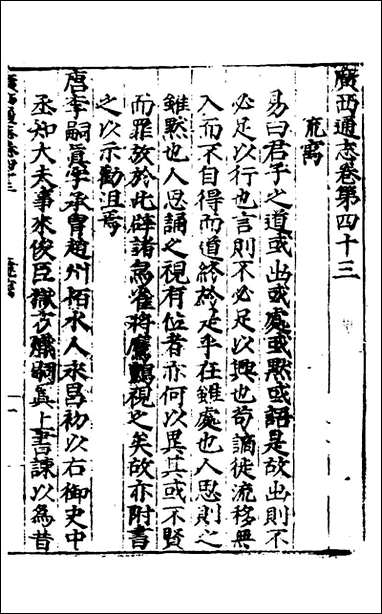 廣西通志卷第四十三
流寓
易曰君子之道或出或處或默或語是故出則不
必足以行也言則不必足以興也苟謫徙流移無
入而不自得而道終於是乎在雖處也人思則之
雖默也人思誦之視有位者亦何以異其或不賢
而罪放於此辟諸鳥雀將鷹鸇視之矣故亦附書
之以示勸沮焉
唐李嗣真字承胄趙州栢水人永昌初以右御史中
丞知大夫事來俊臣獄方熾嗣真上書諫以為昔